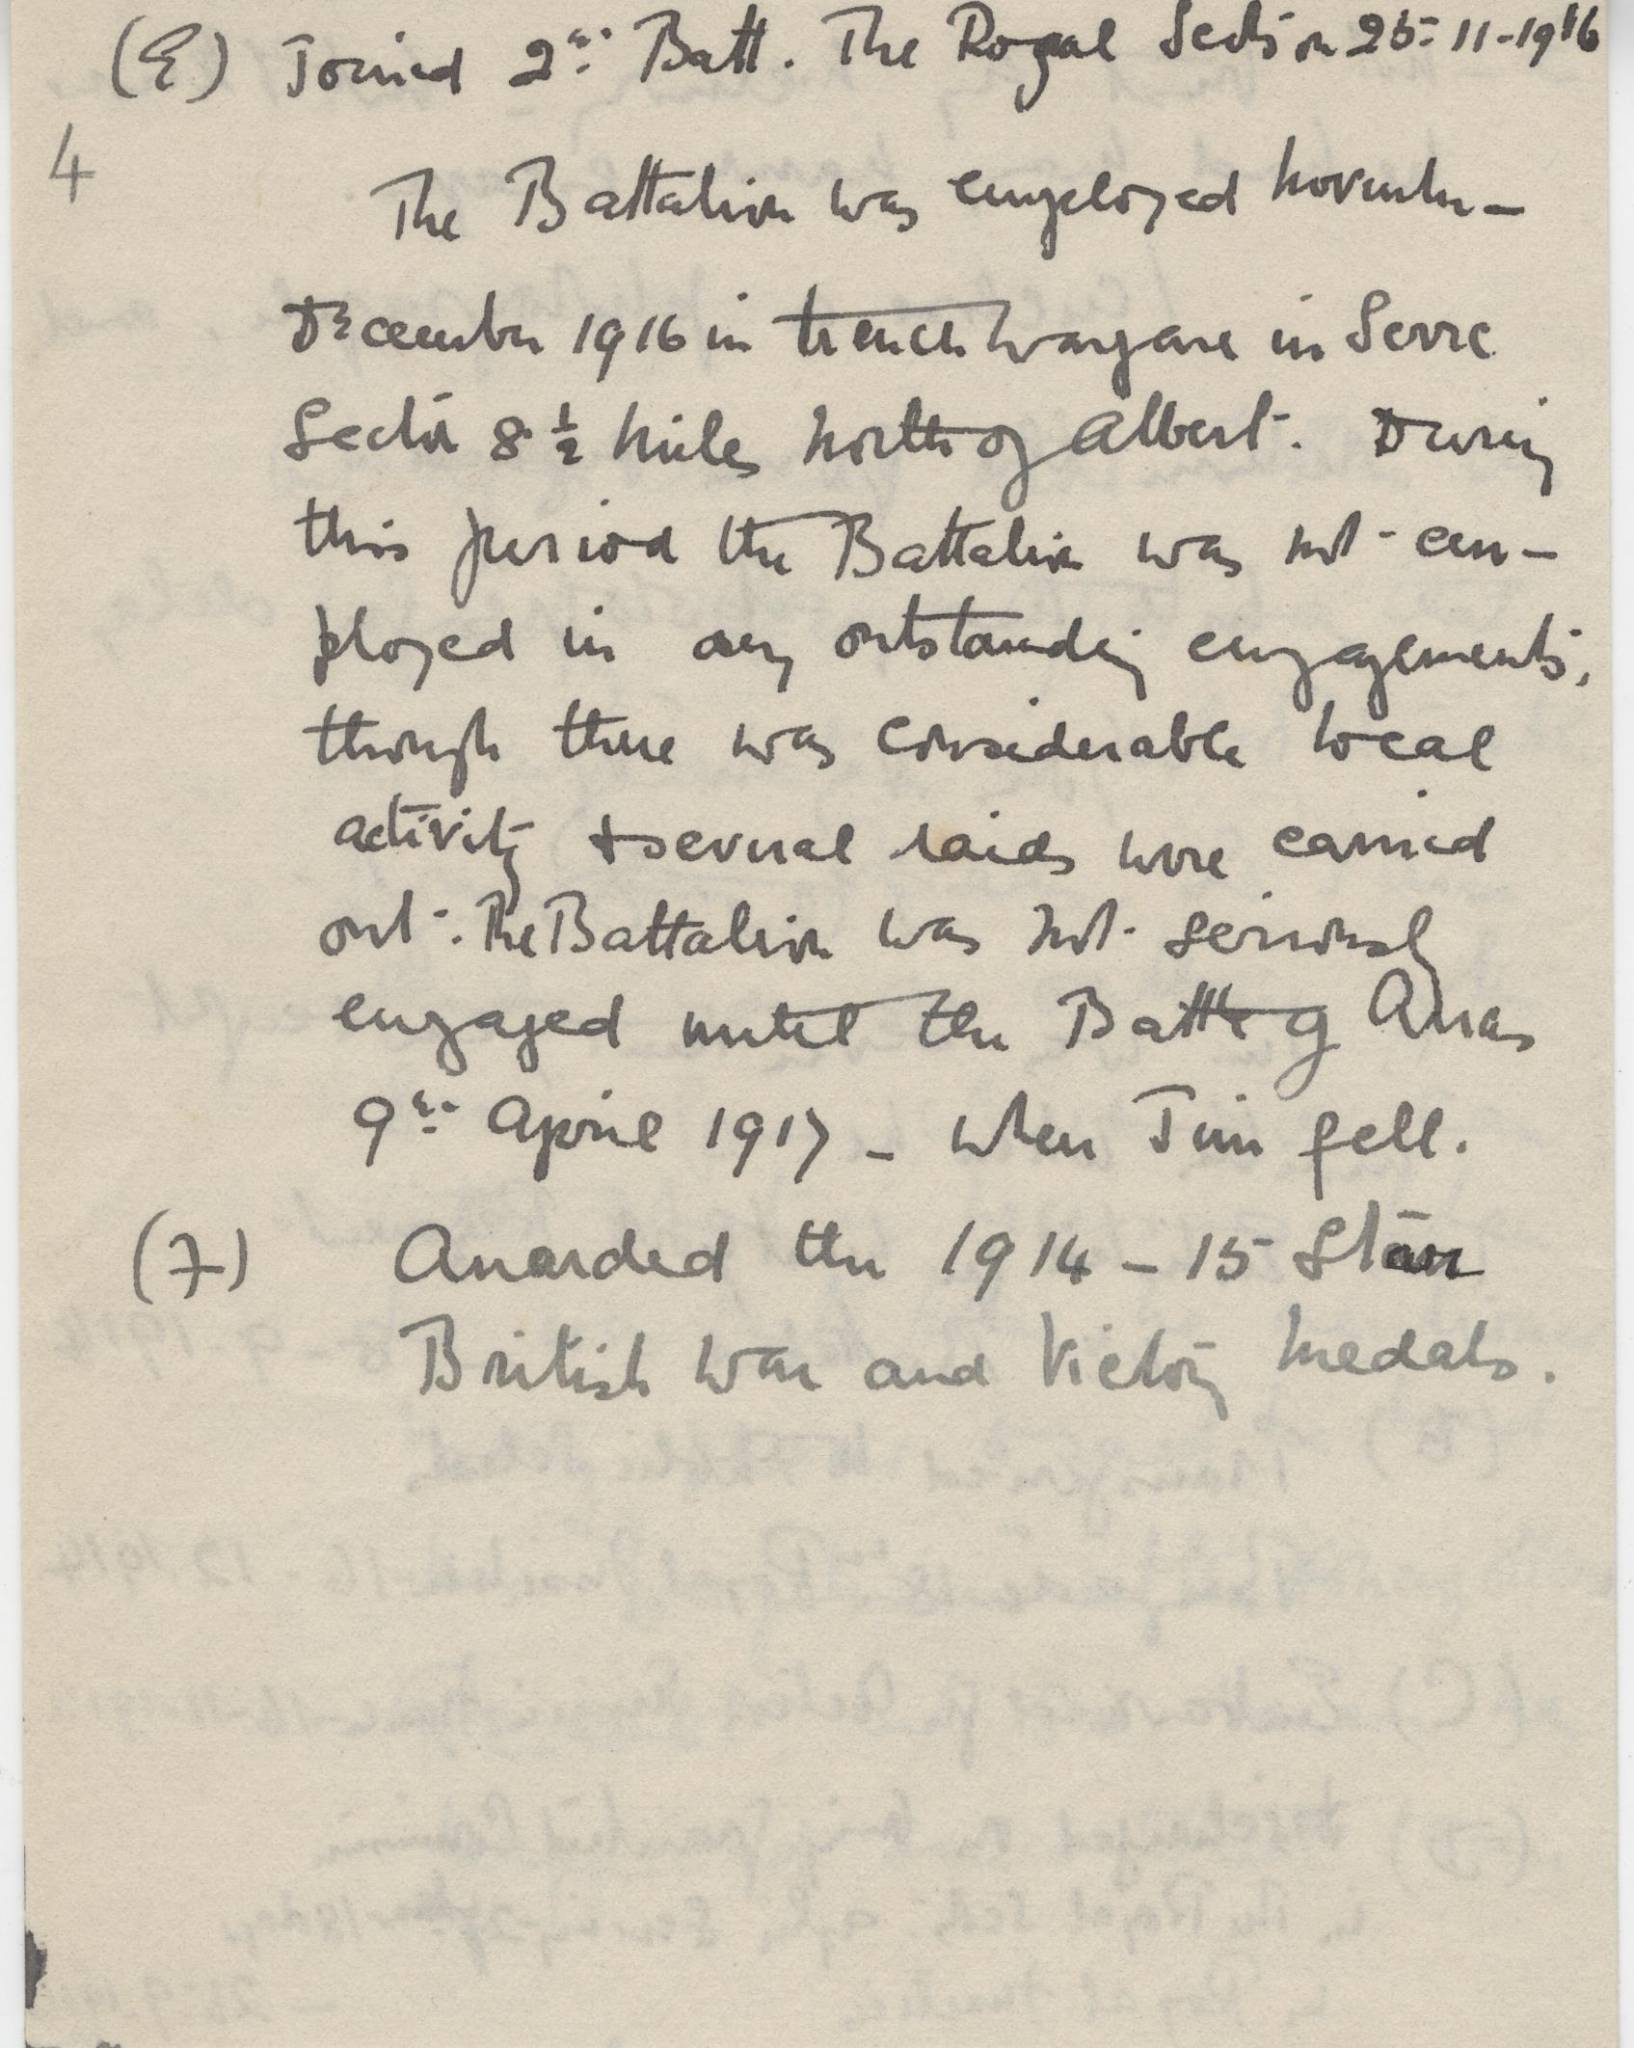 (E) Joined 2nd Batt. The Royal Scots on 25-11-1916
4
The Battalion was employed November-
December 1916 in trench warfare in Serre
Sector 8 1/2 miles north of Albert. During
this period the Battalion was not em-
ployed in any outstanding engagements,
though there was considerable local
activity & several raids were carried
out. The Battalion was not seriously
engaged until the Battle of Arras
9th April 1917 - when Jim fell.
(F) Awarded the 1914-15 Star
British War and Victory Medals.